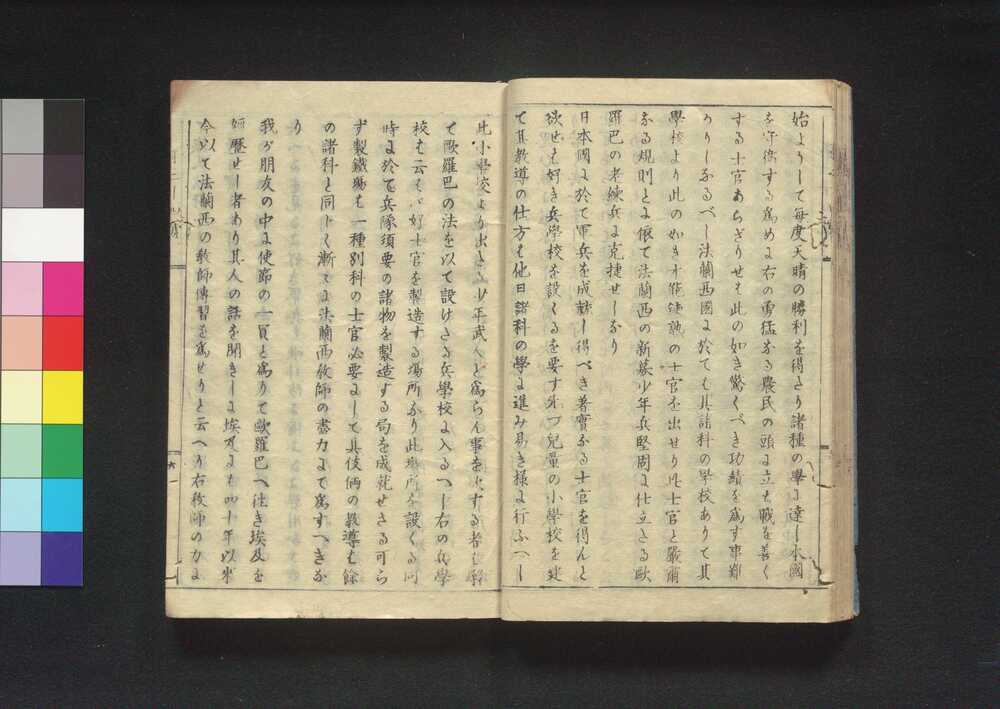 始よりして毎度天晴の勝利を得たり諸種の學に達し本國
を守衛する為めに右の勇猛なる農民の頭に立ち戰を善く
する士官あらざりせば此の如き驚くべき功績を為す事難
かりしなるべし法蘭西國に於ても其諸科の學校ありて其
學校より此のごとき才能練熟の士官を出せり此士官と嚴肅
なる規則とに依て法蘭西の新募少年兵堅固に仕立たる歐
羅巴の老練兵に克捷せしなり
日本國に於て軍兵を成就し得べき著實なる士官を得んと
欲せば好き兵學校を設くるを要す先づ兒童の小學校を建
て其教導の仕方は他日諸科の學に進み易き様に行ふべし
此小學校より出たる少年武人と為らん事を欲する者は
て歐羅巴の法を以て設けたる兵學校に入るべし右の兵學
校は云はゞ好士官を製造する場所なり此場所を設くる同
時に於て兵隊須要の諸物を製造する局を成就せざる可ら
ず製鐵場も一種別科の士官必要にして其伎倆の教導も餘
の諸科と同じく漸々に法蘭西教師の盡力にて為すべきな
り
我が朋友の中に使節の一員と為りて歐羅巴へ往き埃及を
經歴せし者あり其人の話を聞きしに埃及にも四十年以来
今以て法蘭西の教師傳習を為せりと云へり右教師の力に